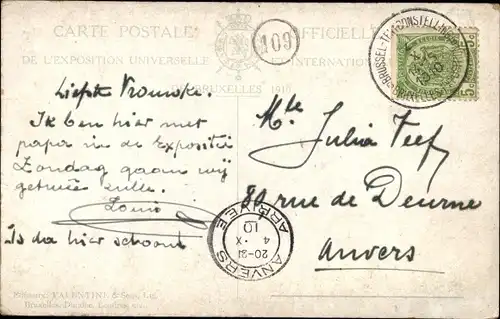 CARTE POSTALE OFFICIELLE
DE L'EXPOSITION UNIVERSELLE ET INTERNATIONALE
DE BRUXELLES 1910
109
Liefste Vrouwke.
Ik ben hier met
papa in de Expositie
Zondag gaan wij
zulle.
Louis
Is da hier schoont
Mlle Julia Teef
80 rue de Deurne
Anvers
ANVERS
20-21
4 · X
10
ARRIVEE
5c
VALENTINE & Sons, Ltd.
Bruxelles, Dundee, Londres, etc.